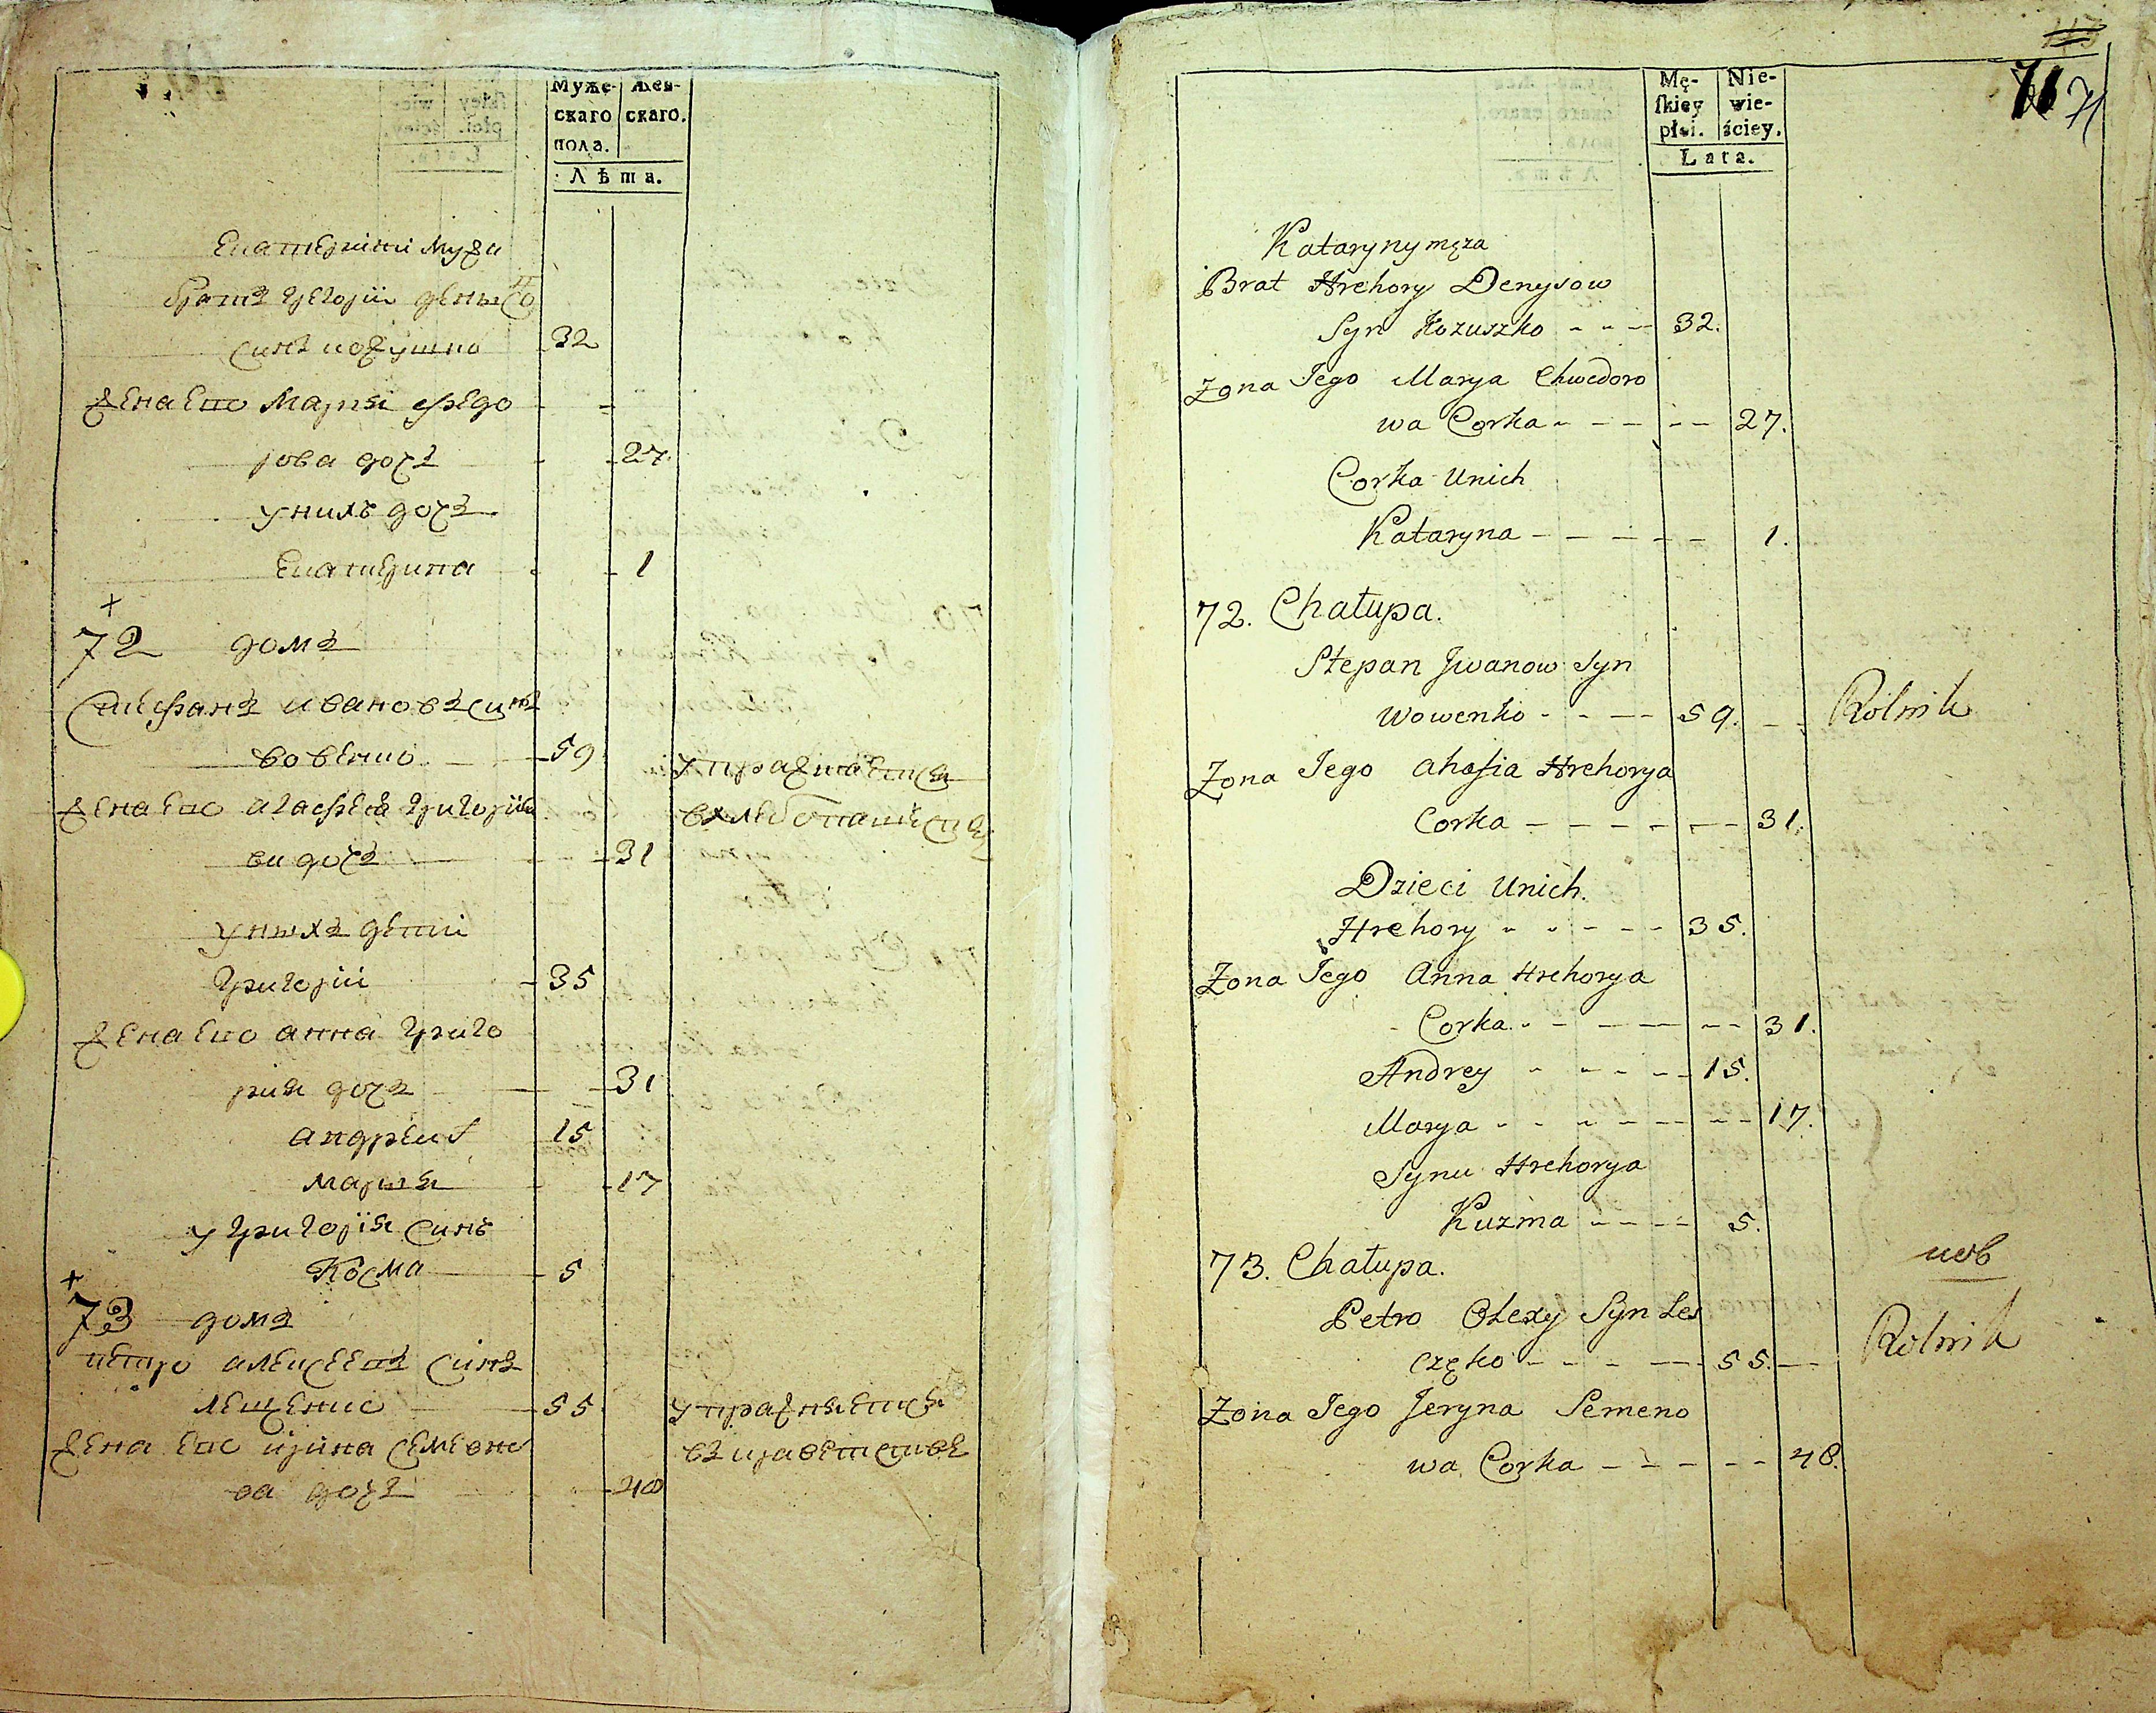 Муже-
скаго
пола.
Жен-
скаго.
Лѣта.
Екатерини мужа
братъ Григорій Денисо
синъ кожушко 32
жена его Марія Федо
рова дочъ 27
у нихъ дочъ
Екатерина 1
72 домъ
Стефанъ Ивановъ синъ
вовенко 59 упражнается
жена его Агафія Григорія в хлебопашестве
ва дочъ 31
у нихъ дети
Григорій 35
жена его Анна Григо
рия дочъ 31
Андрей 15
Мария 17
у Григорія синъ
Косма 5
73 домъ
Петро Алексеевъ синъ
лещенко 55 упражняется
жена его Ирина Семено
ва дочъ 48
71
71
Mę-
ſkiey
płci.
Nie-
wie-
ściey.
Lata.
Kataryny męza
Brat Hrehory Denysow
Syn Kozuszko - - - 32.
Zona Jego Marya Chwedoro
wa Corka - - - - - 27.
Corka Unich
Kataryna - - - - - 1.
72. Chałupa.
Stepan Jwanow Syn
Wowenko - - - - 59. - - Rolnik
Zona Jego Ahafia Hrehorya
Corka - - - - - - 31.
Dzieci Unich.
Hrehory - - - - - 35.
Zona Jego Anna Hrehorya
Corka - - - - - 31.
Andrey - - - - - 15.
Marya - - - - - - - 17.
Synu Hrehorya
Kuzma - - - - 5.
73. Chałupa.
Petro Olexy Syn Les
częko - - - - - 55. - - Rolnik
Zona Jego Jeryna Semeno
wa Corka - - - - - 48.